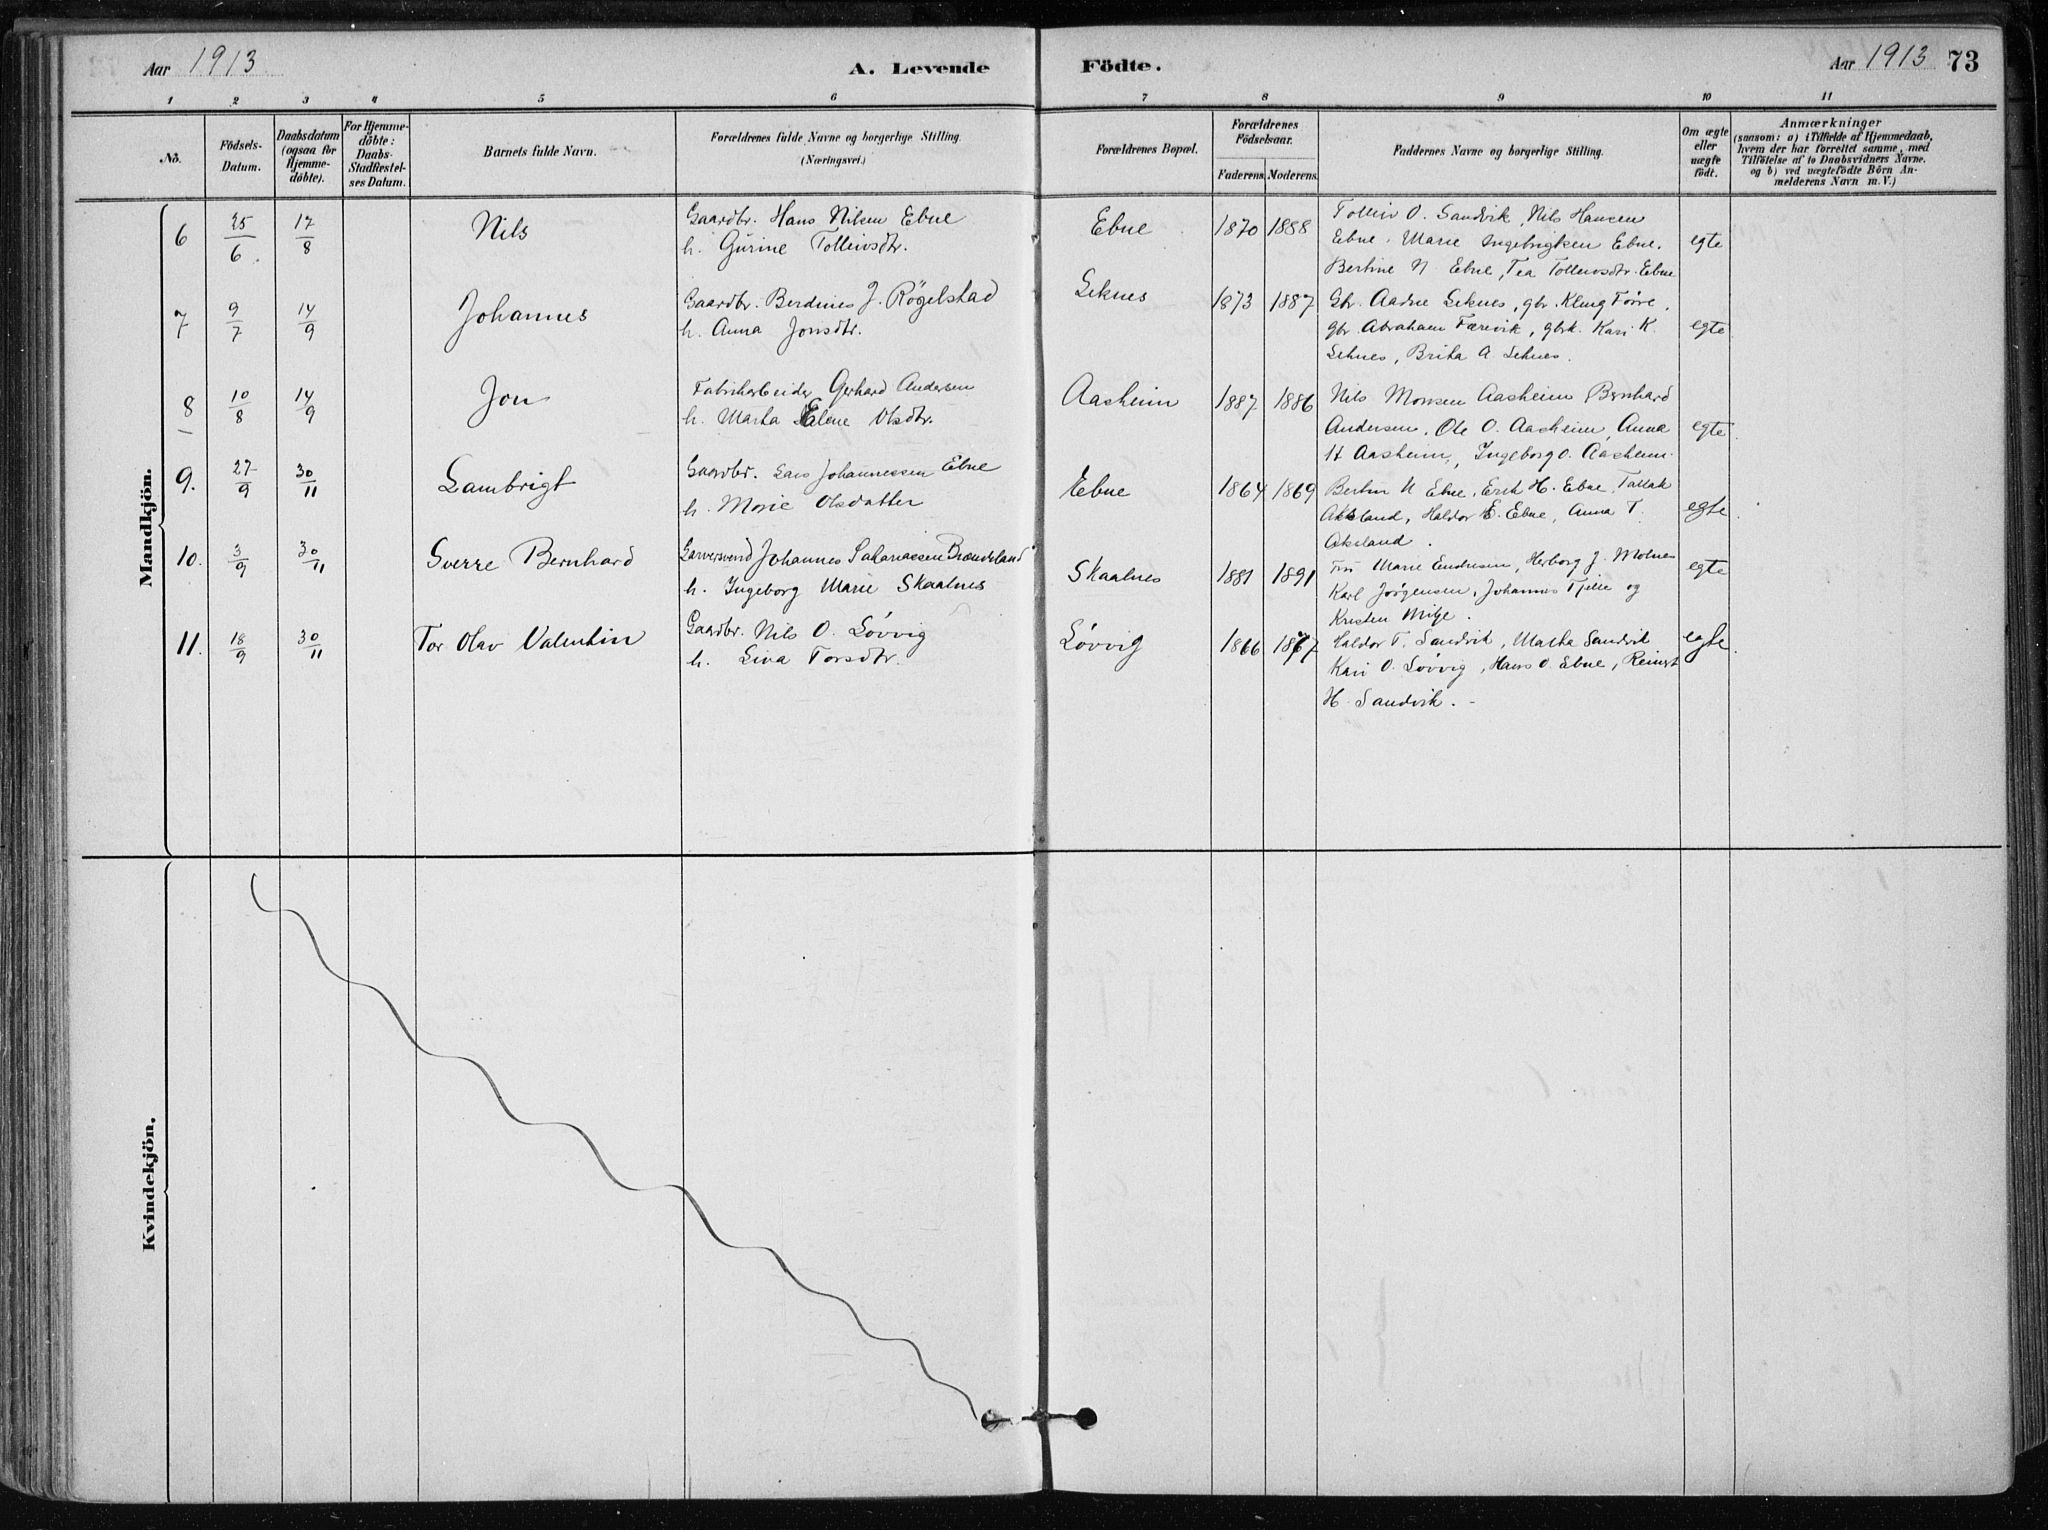 Aar 1913 A. Levende Födte. Aar 1913 73
1 2 3 4 5 6 7 8 9 10 11
No.
Födsels-
Datum.
Daabsdatum
(ogsaa for
Hjemme-
döbte).
For Hjemme-
döbte:
Daabs-
Stadfæstel-
ses Datum.
Barnets fulde Navn.
Forældrenes fulde Navne og borgerlige Stilling.
(Næringsvei.)
Forældrenes Bopæl.
Forældrenes
Födselsaar.
Faderens. Moderens.
Faddernes Navne og borgerlige Stilling.
Om ægte
eller
uægte
født.
Anmærkninger
(saasom: a) i Tilfælde af Hjemmedaab,
hvem der har forrettet samme, med
Tilföielse af to Daabsvidners Navne.
og b) ved uægtefödte Börn An-
melderens Navn m. V.)
Mandkjön.
6 25/6. 17/8 Nils
Gaardbr. Hans Nilsen Ebne
h. Gurine Tolleivsdtr.
Ebne 1870 1888
Tolleiv O. Sandvik, Nils Hansen
Ebne. Marie Ingebrigtsen Ebne.
Bertine N Ebne, Tea Tolleivsdtr. Ebne
egte
7 9/7 14/9 Johannes
Gaardbr. Berdines J. Rögelstad
h. Anna Jonsdtr.
Seknes 1873 1887
Gbr. Aadne Seknes, gbr. Kleng Førre,
gbr. Abraham Færevik, gbrk. Kari K.
Seknes, Brita A Seknes.
egte
8 10/8 14/9 Jon
Fabrikarbeider Gerhard Andersen
h. Marta Elene Olsdtr.
Aasheim 1887 1886
Nils Monsen Aasheim Bernhard
Andersen, Ole O. Aasheim, Anna
H Aasheim, Ingeborg O. Aasheim.
egte
9. 27/9 30/11 Lambrigt
Gaardbr. Lars Johannessen Ebne
h. Marie Olsdatter
Ebne 1864 1869
Bertin N Ebne, Erik H. Ebne, Tallak
Aksland, Haldor E. Ebne, Anna T.
Aksland.
egte
10. 3/9 30/11 Sverre Bernhard
Garversvend Johannes Brændeland
h. Ingeborg Marie Skaalnes
Skaalnes 1881 1891
Marie Endresen, Herborg J. Molnes
Karl Jørgensen, Johannes Tjelle og
Kristen
egte
11. 18/9 30/11 Tor Olav Valentin
Gaardbr. Nils O. Løvvig
h. Lina Torsdtr.
Løvvig 1866 1877
Haldor T. Sandvik, Marta Sandvik
Kari O. Løvvig, Hans O. Ebne, Reinert
H. Sandvik.
egte
Kvindekjön.